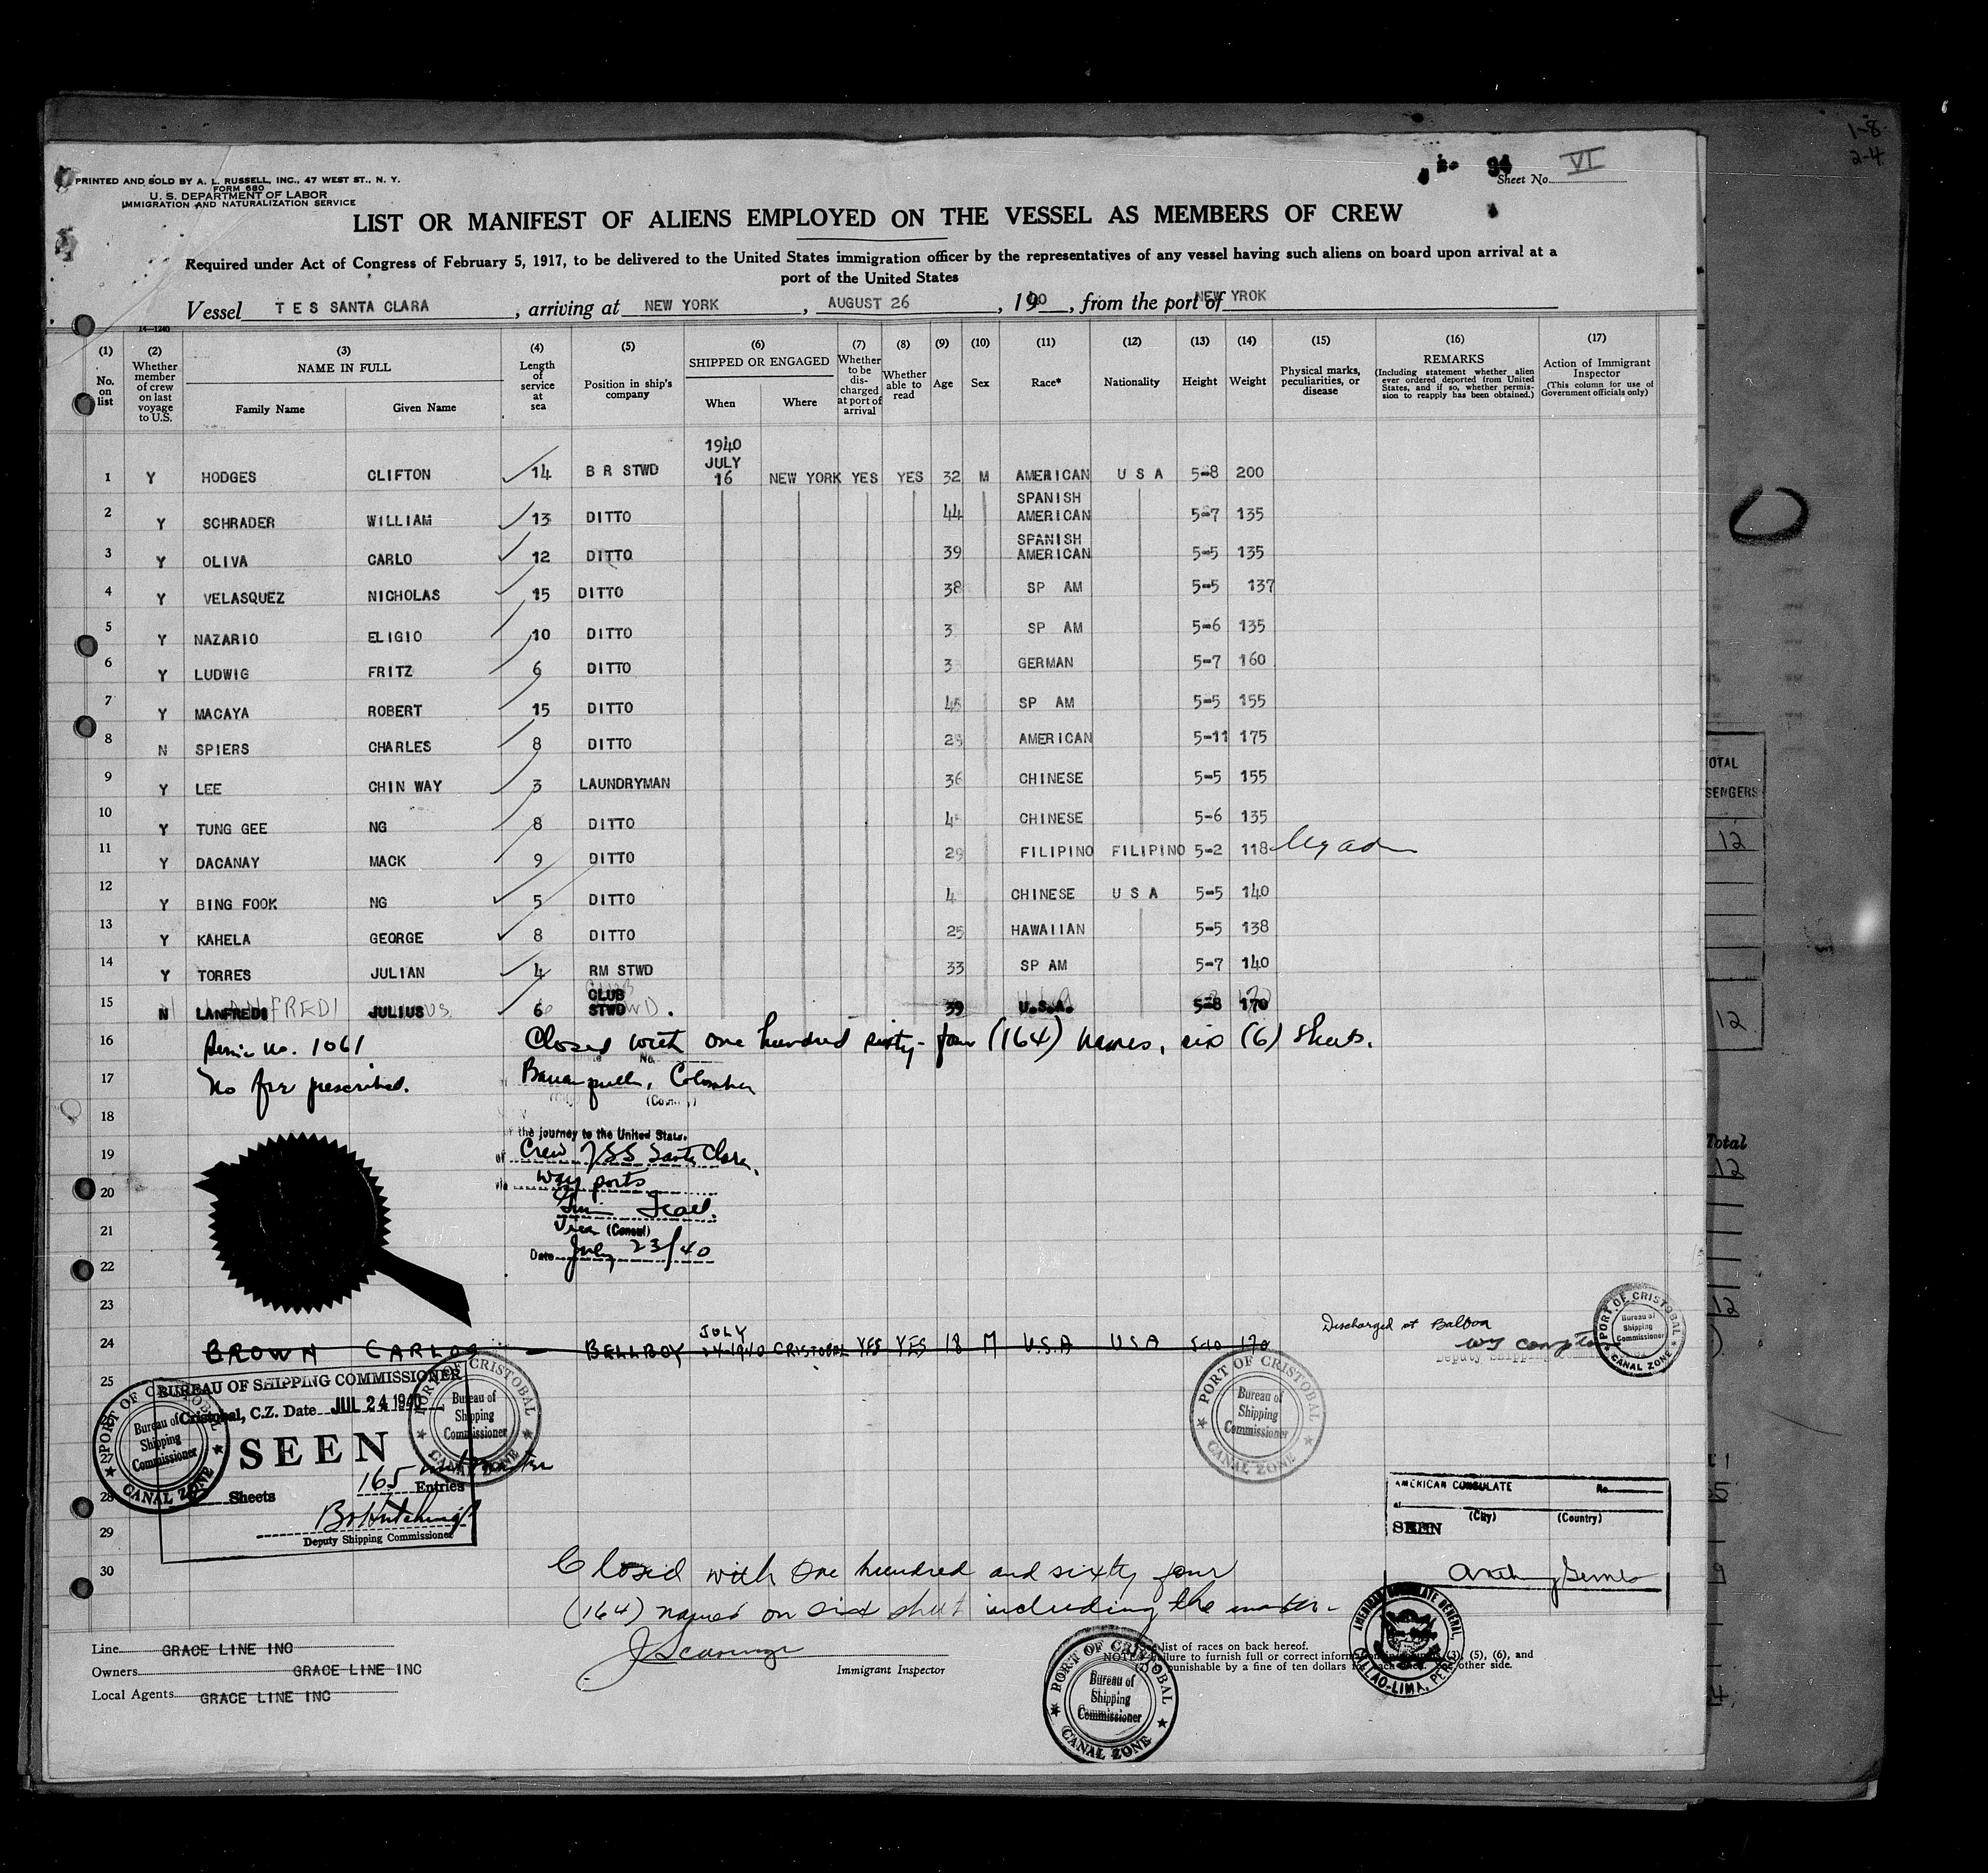 1-8
2-4
94
Sheet No. VI
PRINTED AND SOLD BY A. L. RUSSELL, INC., 47 WEST ST., N. Y.
FORM 680
U. S. DEPARTMENT OF LABOR
IMMIGRATION AND NATURALIZATION SERVICE
LIST OR MANIFEST OF ALIENS EMPLOYED ON THE VESSEL AS MEMBERS OF CREW
Required under Act of Congress of February 5, 1917, to be delivered to the United States immigration officer by the representatives of any vessel having such aliens on board upon arrival at a
port of the United States
Vessel T E S SANTA CLARA, arriving at NEW YORK, AUGUST 26, 1940, from the port of NEW YROK
14-1240
(1) No. on list
(2) Whether member of crew on last voyage to U.S.
(3) NAME IN FULL Family Name Given Name
(4) Length of service at sea
(5) Position in ship's company
(6) SHIPPED OR ENGAGED When Where
(7) Whether to be discharged at port of arrival
(8) Whether able to read
(9) Age
(10) Sex
(11) Race*
(12) Nationality
(13) Height
(14) Weight
(15) Physical marks, peculiarities, or disease
(16) REMARKS (Including statement whether alien ever ordered deported from United States, and if so, whether permission to reapply has been obtained.)
(17) Action of Immigrant Inspector (This column for use of Government officials only)
1 Y HODGES CLIFTON 14 B R STWD 1940 JULY 16 NEW YORK YES YES 32 M AMERICAN U S A 5-8 200
2 Y SCHRADER WILLIAM 13 DITTO 44 SPANISH AMERICAN 5-7 135
3 Y OLIVA CARLO 12 DITTO 39 SPANISH AMERICAN 5-5 135
4 Y VELASQUEZ NICHOLAS 15 DITTO 38 SP AM 5-5 137
5 Y NAZARIO ELIGIO 10 DITTO 3 SP AM 5-6 135
6 Y LUDWIG FRITZ 6 DITTO 3 GERMAN 5-7 160
7 Y MACAYA ROBERT 15 DITTO 45 SP AM 5-5 155
8 N SPIERS CHARLES 8 DITTO AMERICAN 5-11 175
9 Y LEE CHIN WAY 3 LAUNDRYMAN 36 CHINESE 5-5 155
10 Y TUNG GEE NG 8 DITTO 4 CHINESE 5-6 135
11 Y DACANAY MACK 9 DITTO 29 FILIPINO FILIPINO 5-2 118
12 Y BING FOOK NG 5 DITTO 4 CHINESE U S A 5-5 140
13 Y KAHELA GEORGE 8 DITTO 25 HAWAIIAN 5-5 138
14 Y TORRES JULIAN 4 RM STWD 33 SP AM 5-7 140
15 N LANFREDI JULIUS 6 CLUB STWD. 39 U.S.A. 5-8 170
16 No. 1061 Closed with one hundred sixty-four (164) names, six (6) sheets.
17 No fee prescribed. Barranquilla, Colombia
18
of the journey to the United States.
19 of Crew TSS Santa Clara,
20 via way ports
21 (Consul)
22 Date July 23/40
23
24 BROWN CARLOS — BELLBOY JULY 24-1940 CRISTOBAL YES YES 18 M U.S.A USA 5-10 170
Discharged at Balboa
Deputy Shipping
PORT OF CRISTOBAL Bureau of Shipping Commissioner CANAL ZONE
25
BUREAU OF SHIPPING COMMISSIONER
Cristobal, C.Z. Date JUL 24 1940
SEEN
Sheets 165 Entries
Deputy Shipping Commissioner
PORT OF CRISTOBAL Bureau of Shipping Commissioner CANAL ZONE
PORT OF CRISTOBAL Bureau of Shipping Commissioner CANAL ZONE
PORT OF CRISTOBAL Bureau of Shipping Commissioner CANAL ZONE
27
28
29
30
AMERICAN CONSULATE No.
at (City) (Country)
SEEN
Closed with One hundred and sixty four
(164) names on six sheet including the master.
AMERICAN CONSULATE GENERAL, CALLAO-LIMA, PERU
Immigrant Inspector
Line GRACE LINE INC
Owners GRACE LINE INC
Local Agents GRACE LINE INC
PORT OF CRISTOBAL Bureau of Shipping Commissioner CANAL ZONE
list of races on back hereof.
NOTE failure to furnish full or correct (3), (5), (6), and
punishable by a fine of ten dollars other side.
TOTAL
12
12
Total
12
12